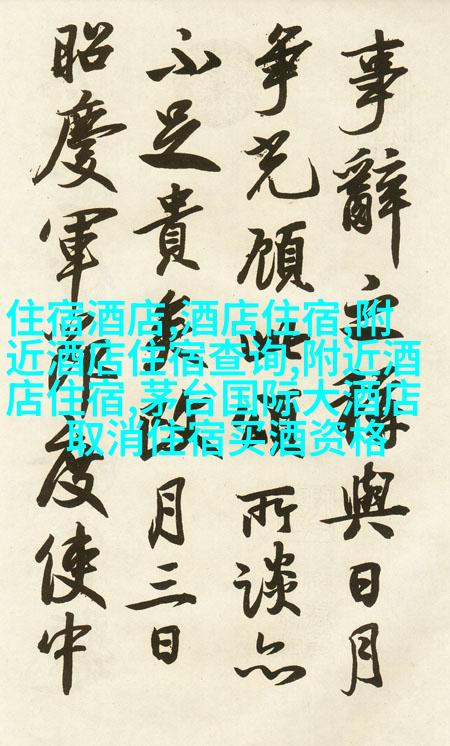 住宿酒店,酒店住宿,附
近酒店住宿查询,附近酒
店住宿,茅台国际大酒店
取消住宿买酒资格
事辭與日月
爭光顧所談亦
不足貴月三日
昭慶軍節度使中